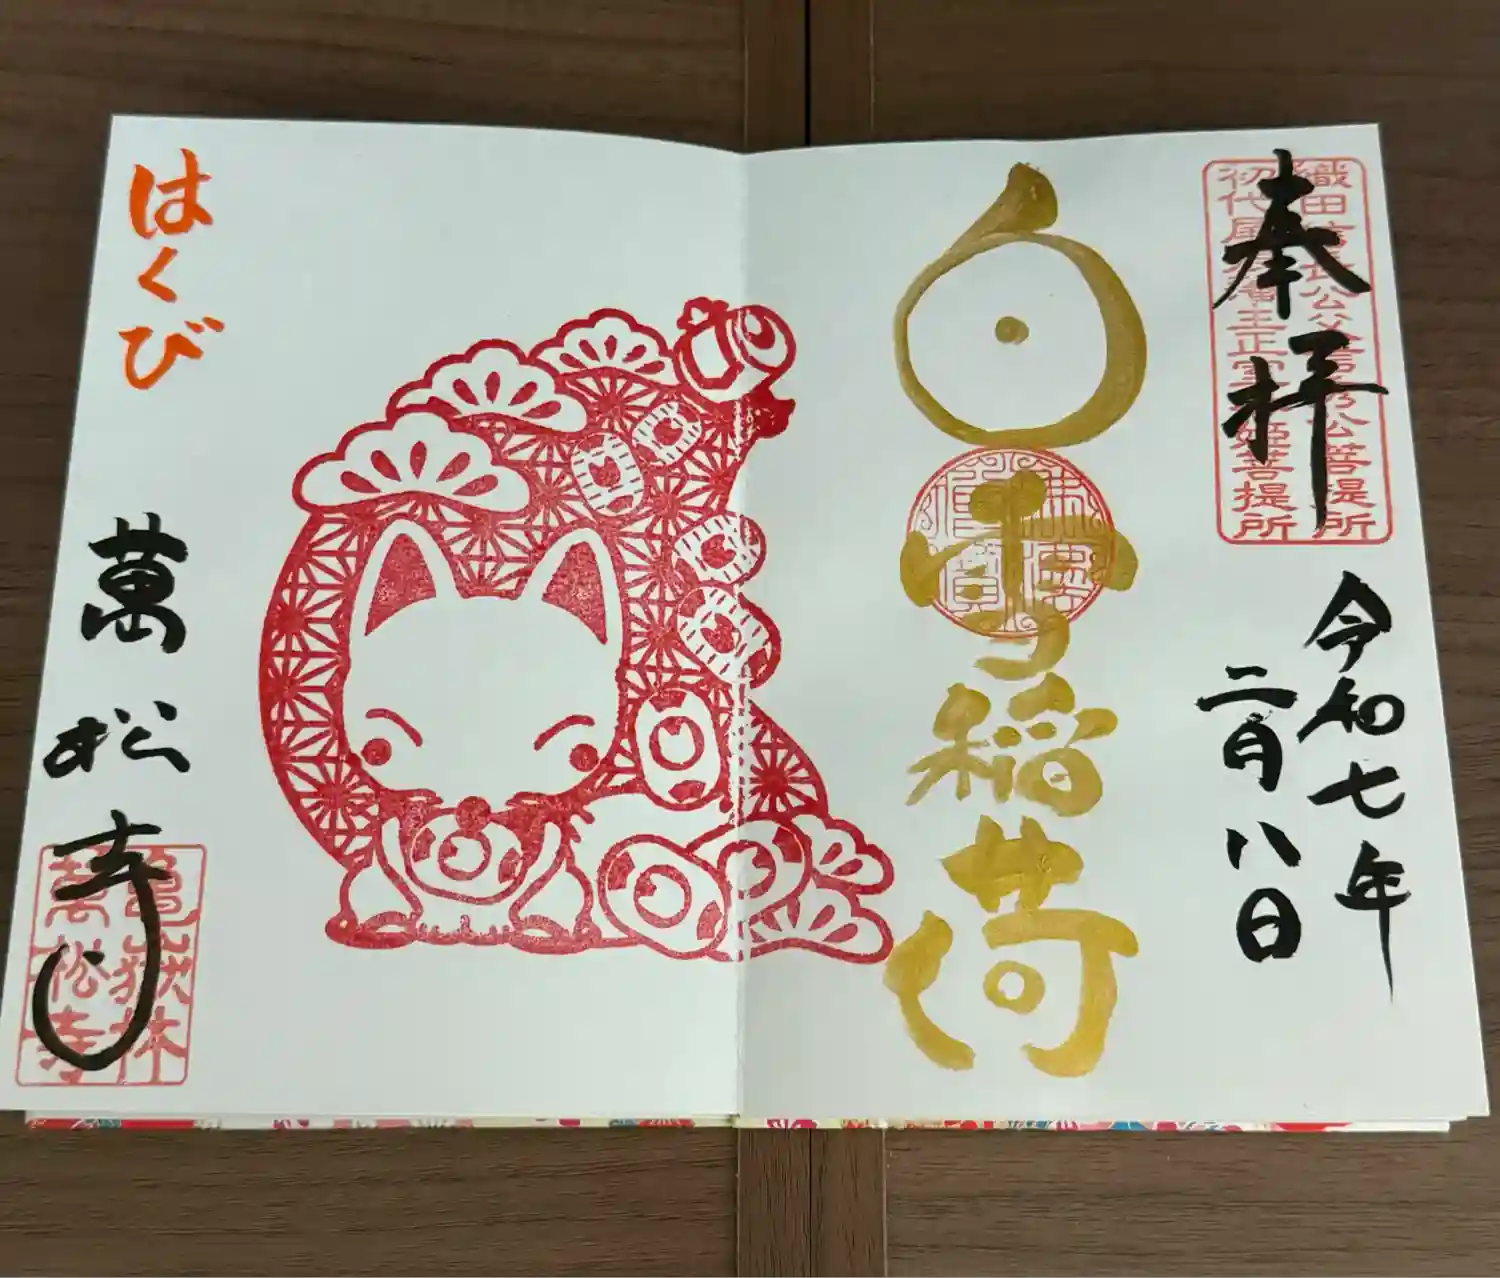 奉拝
織田信長公父信秀公菩提所
初代尾張藩主正室春姫菩提所
令和七年
二月八日
白雪稲荷
はくび
萬松寺
亀嶽林
萬松寺